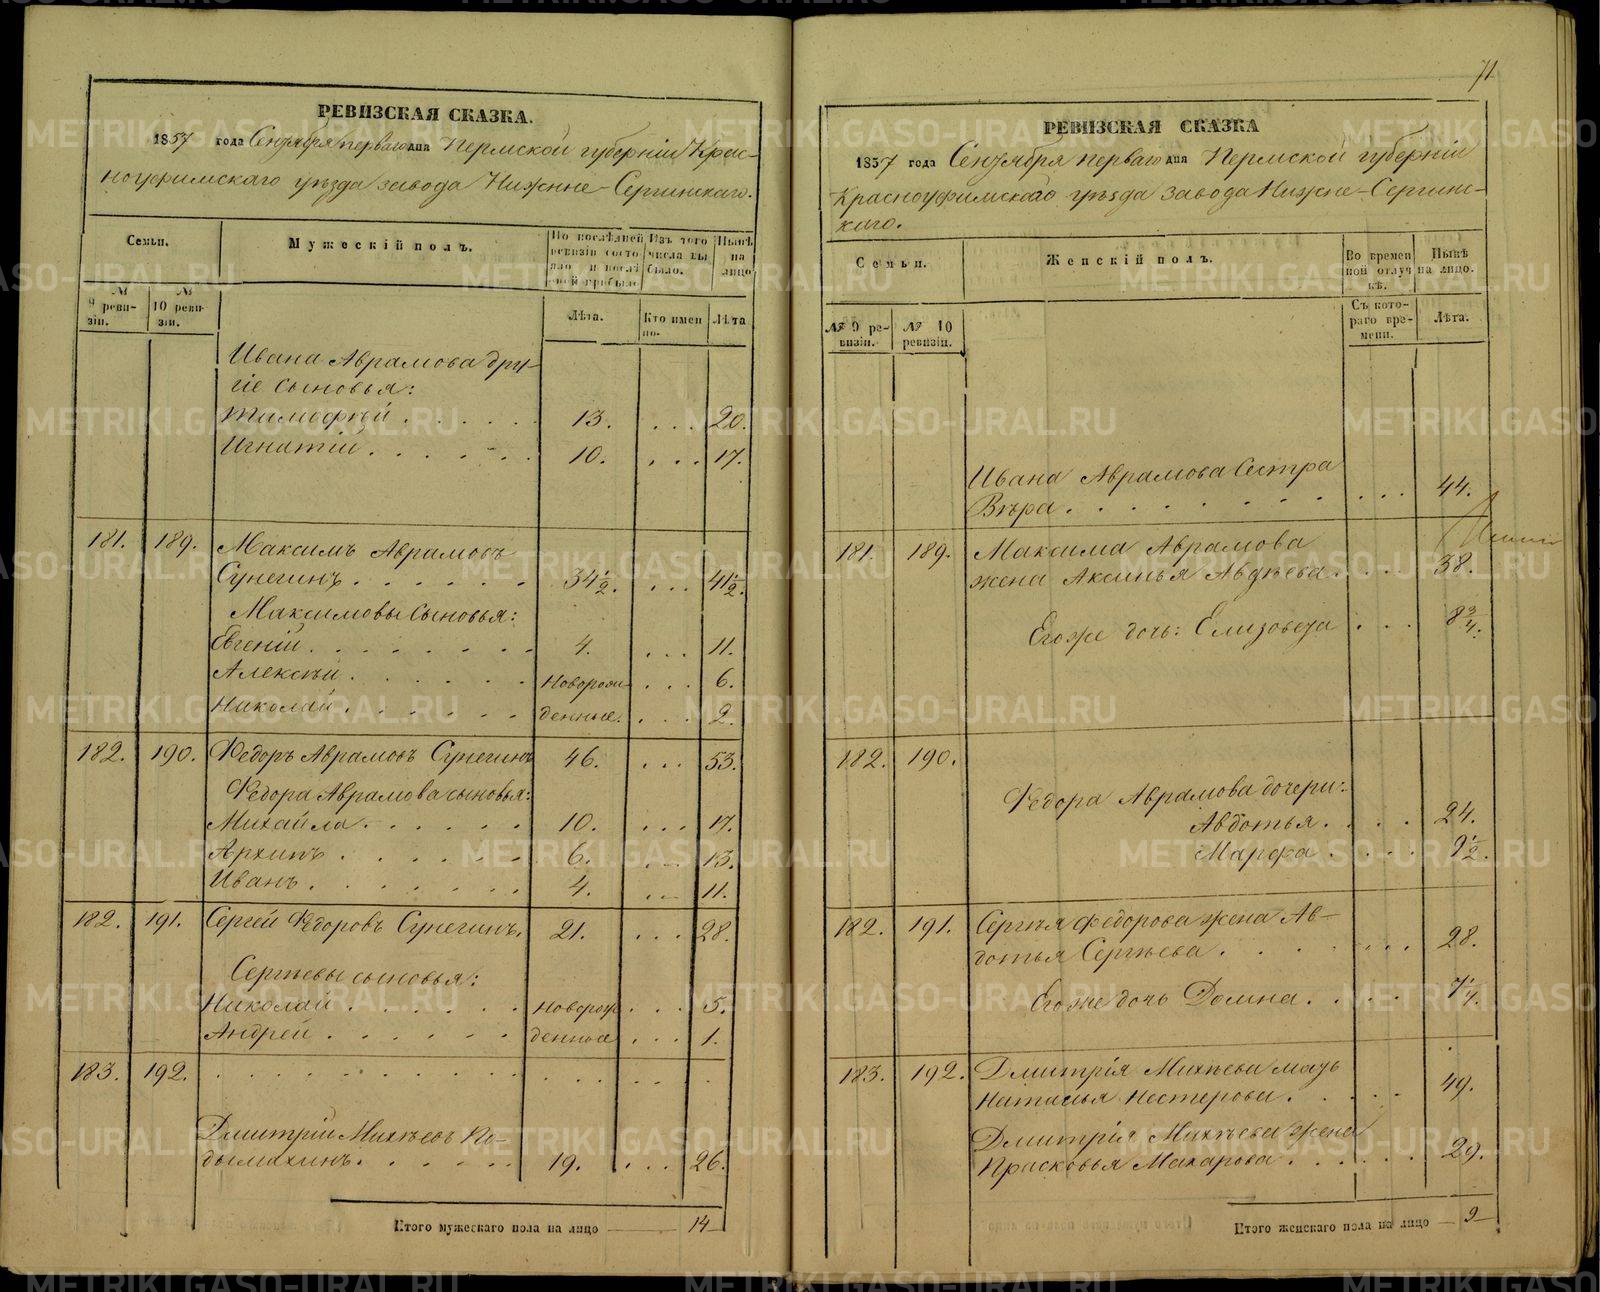 РЕВИЗСКАЯ СКАЗКА.
1857 года Сентября перваго дня Пермской губерніи Крас-
ноуфимскаго уѣзда завода Нижне-Сергинскаго.
Семьи.
Мужескій полъ.
По послѣдней ревизіи состояло и послѣ оной прибыло
Изъ того числа выбыло.
Нынѣ на лицо
№ 9 реви-
зіи.
№ 10 реви-
зіи.
Лѣта.
Кто имен
но.
Лѣта
Ивана Аврамова дру-
гіе сыновья:
Тимофѣй . . . . . . 13. . . . 20.
Игнатій . . . . . . 10. . . . 17.
181. 189. Максимъ Аврамовъ
Сунегинъ . . . . . . 34 1/2. . . . 41 1/2.
Максимовы сыновья:
Евгеній . . . . . . . 4. . . . 11.
Алексѣй . . . . . . Новорож- . . . 6.
Николай . . . . . . денные. . . . 2.
182. 190. Ѳедоръ Аврамовъ Сунегинъ 46. . . . 53.
Ѳедора Аврамова сыновья:
Михайла . . . . . . 10. . . . 17.
Архипъ . . . . . . 6. . . . 13.
Иванъ . . . . . . . 4. . . . 11.
182. 191. Сергей Ѳедоровъ Сунегинъ. 21. . . . 28.
Сергѣевы сыновья:
Николай . . . . . . новорож . . . 5.
Андрей . . . . . . денные . . . 1.
183. 192. . . . . . . . . . .
Дмитрій Михѣевъ По-
дымахинъ . . . . . . 19. . . . 26.
Итого мужескаго пола на лицо — 14
71
РЕВИЗСКАЯ СКАЗКА
1857 года Сентября перваго дня Пермской губерніи
Красноуфимскаго уѣзда завода Нижне-Сергинс-
каго.
Семьи.
Женскій полъ.
Во времен
ной отлуч
кѣ.
Нынѣ
на лицо.
№ 9 ре-
визіи.
№ 10
ревизіи.
Съ кото-
раго вре-
мени.
Лѣта.
Ивана Аврамова сестра
Вѣра . . . . . . . . . . 44.
181. 189. Максима Аврамова
жена Аксинья Авдѣева . . . . 38.
Его же дочь: Елизовета . . . 8 3/4.
182. 190.
Ѳедора Аврамова дочери:
Авдотья . . . . 24.
Марфа . . . . 9 1/2.
182. 191. Сергѣя Федорова жена Ав-
дотья Сергѣева . . . . . . . 28.
Его же дочь Домна . . . . 7 1/4.
183. 192. Дмитрія Михѣева мать
Наталья Нестерова . . . . . 49.
Дмитрія Михѣева жена
Прасковья Макарова . . . . . . 29.
Итого женскаго пола на лицо — 9
METRIKI.GASO-URAL.RU